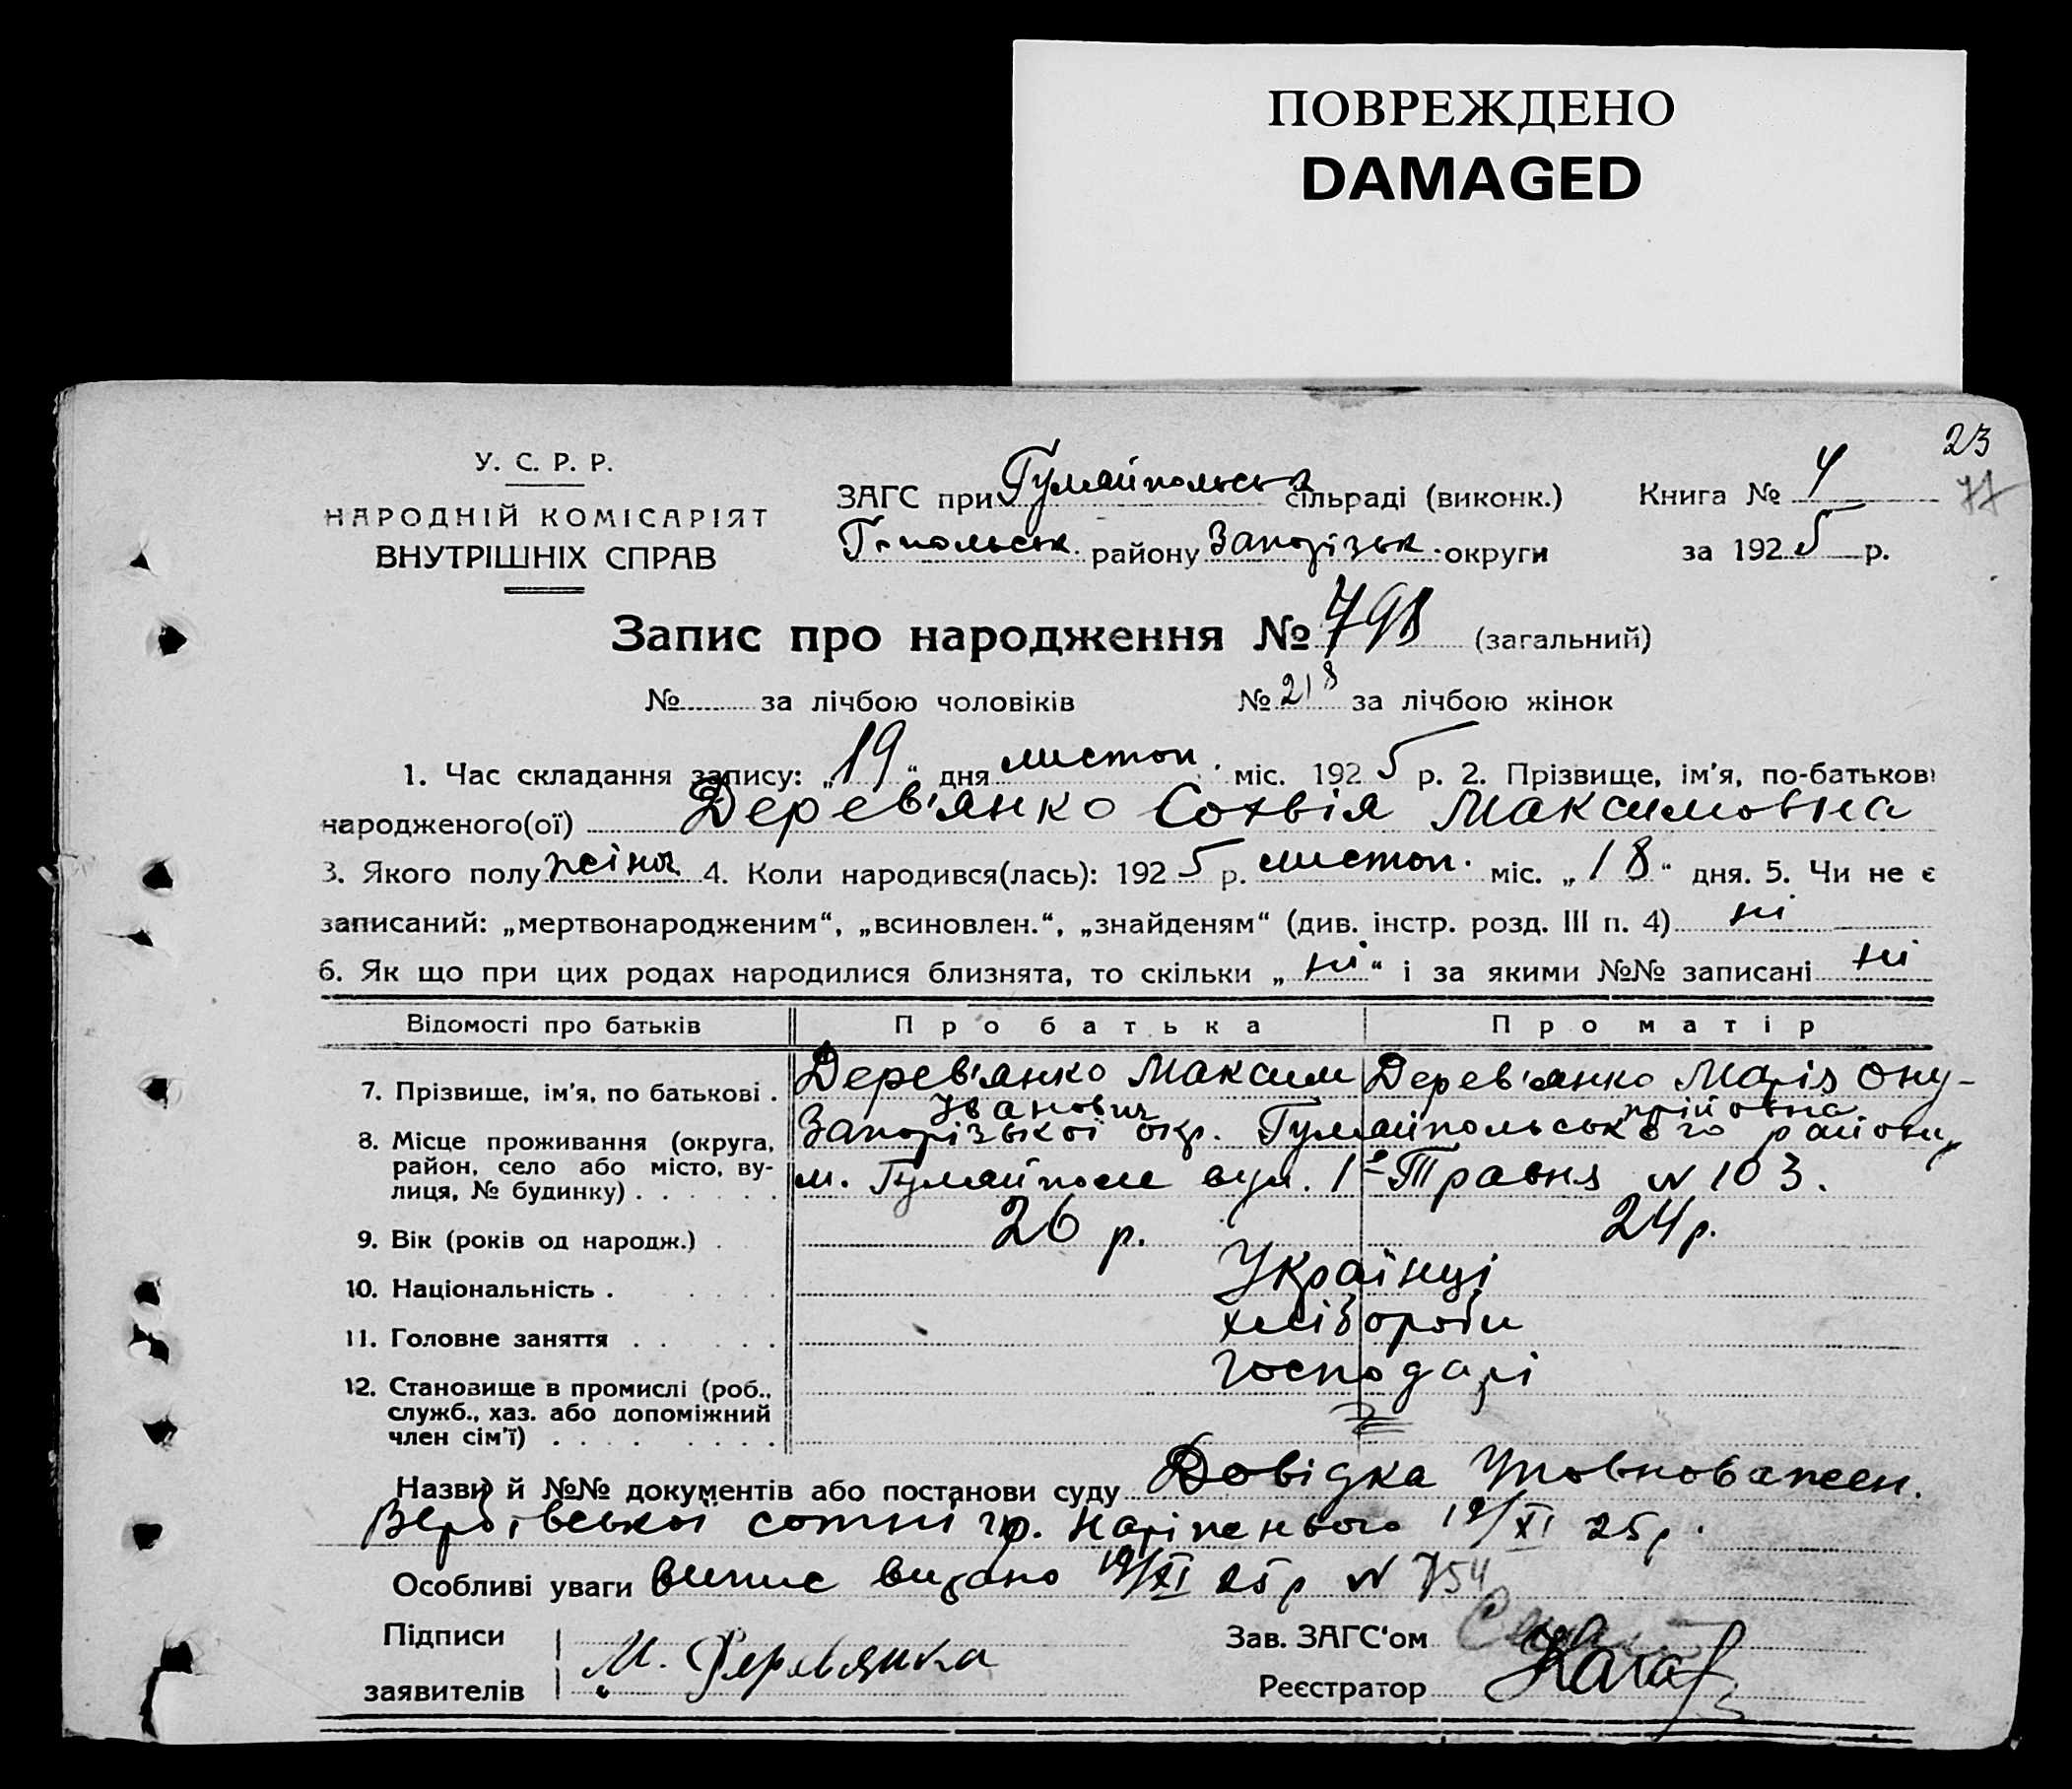 ПОВРЕЖДЕНО
DAMAGED
23
У. С. Р. Р.
НАРОДНІЙ КОМІСАРІЯТ
ВНУТРІШНІХ СПРАВ
ЗАГС при Гуляйпольськ сільраді (виконк.) Книга № 4
Г-польськ. району Запорізьк. округи за 1925 р.
Запис про народження № 798 (загальний)
№ за лічбою чоловіків № 218 за лічбою жінок
1. Час складання запису: „19“ дня листоп. міс. 1925 р. 2. Прізвище, ім'я, по-батькові
народженого(ої) Дерев'янко Софія Максимовна
3. Якого полу жіноч 4. Коли народився(лась): 1925 р. листоп. міс. „18“ дня. 5. Чи не є
записаний: „мертвонародженим“, „всиновлен.“, „знайденям“ (див. інстр. розд. III п. 4) ні
6. Як що при цих родах народилися близнята, то скільки „ні“ і за якими №№ записані ні
Відомості про батьків Про батька Про матір
7. Прізвище, ім'я, по батькові . Дерев'янко Максим Іванович Дерев'янко Марія Ону-
прійовна
8. Місце проживання (округа, Запорізької окр. Гуляйпольського району,
район, село або місто, ву-
лиця, № будинку) . м. Гуляйполе вул. 1го Травня № 103.
9. Вік (років од народж.) . 26 р. 24 р.
10. Національність . Українці
11. Головне заняття . хлібороби
12. Становище в промислі (роб., господарі
служб., хаз. або допоміжний
член сім'ї) .
Назви й №№ документів або постанови суду Довідка Уповноважен.
сотні гр. 19/XI 25 р.
Особливі уваги випис видано 19/XI 25 р № 754
Підписи
заявителів М. Деревянка
Зав. ЗАГС'ом
Реєстратор